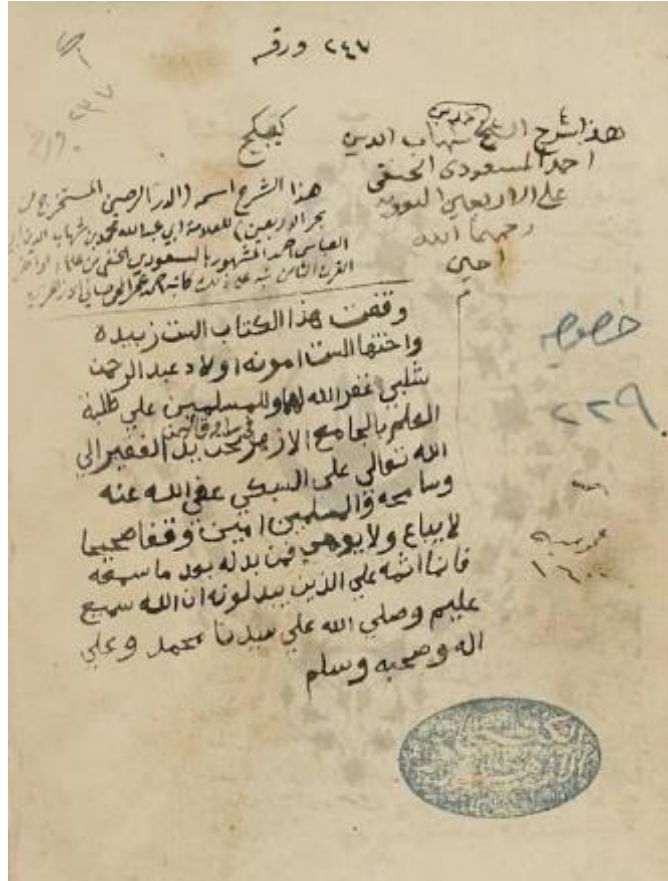 ٢٤٧ ورقه
كيكج
هذا شرح الشيخ شهاب الدين
احمد المسعودي الحنفي
على الاربعين النوويه
رحمهما الله
امين
م
هذا الشرح اسمه (الدر الرصين المستخرج من
بحر الاربعين) للعلامة ابي عبد الله محمد بن شهاب الدين ابي
العباس احمد المشهور بالسعودي الحنفي من علماء اواخر
القرن الثامن نبه على ذلك كاتبه احمد عمر المحمصاني الازهري
وقفت هذا الكتاب الست زبيدة
واختها الست امونه اولاد عبد الرحمن
شلبي غفر الله لهما وللمسلمين علي طلبة
العلم بالجامع الازهر تحت يد الفقير الي
الله تعالى علي السبكي عفي الله عنه
وسامحه والمسلمين امين وقفا صحيحا
لا يباع ولا يوهب فمن بدله بعد ما سمعه
فانما اثمه علي الذين يبدلونه ان الله سميع
عليم وصلي الله علي سيدنا محمد وعلي
اله وصحبه وسلم
خصوصيه
٢٢٩
عموميه
١٦٠٠